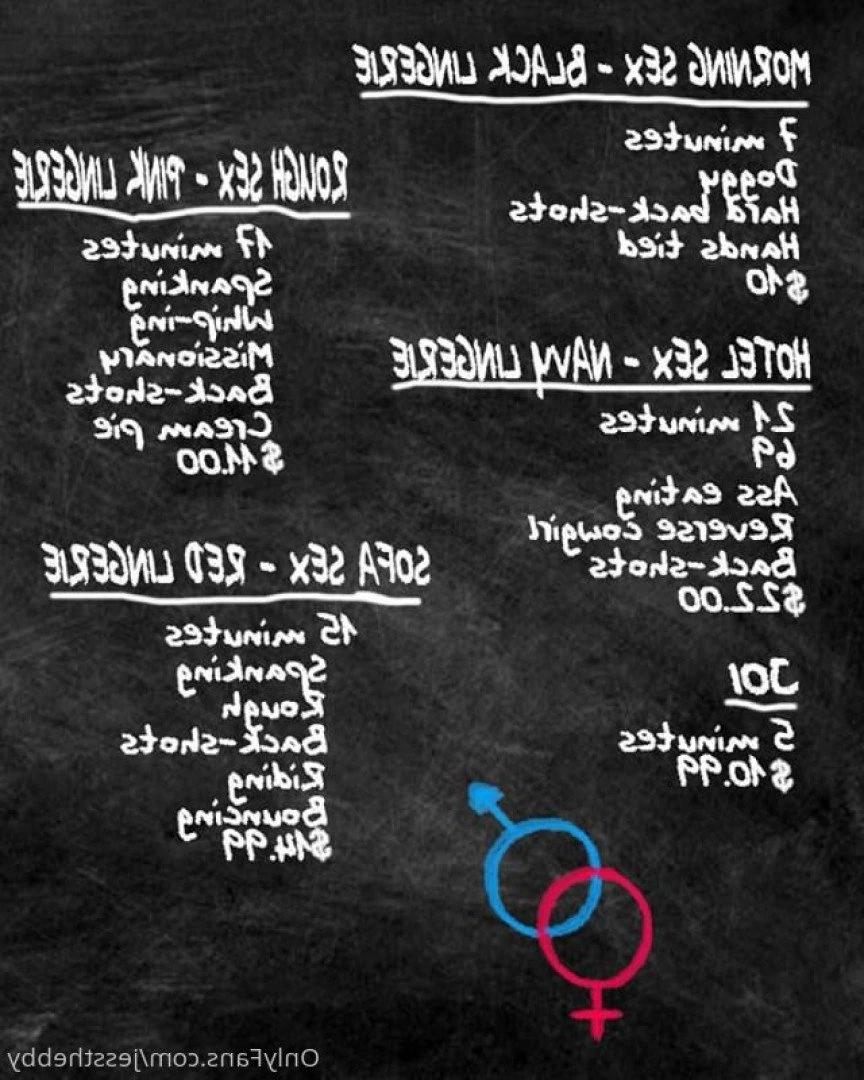 MORNING SEX - BLACK LINGERIE
7 minutes
Doggy
Hard back-shots
Hands tied
$10
HOTEL SEX - NAVY LINGERIE
21 minutes
69
Ass eating
Reverse cowgirl
Back-shots
$22.00
JOI
5 minutes
$10.99
ROUGH SEX - PINK LINGERIE
17 minutes
Spanking
Whip-ing
Missionary
Back-shots
Cream pie
$11.00
SOFA SEX - RED LINGERIE
15 minutes
Spanking
Rough
Back-shots
Riding
Bouncing
$14.99
OnlyFans.com/jessthebby